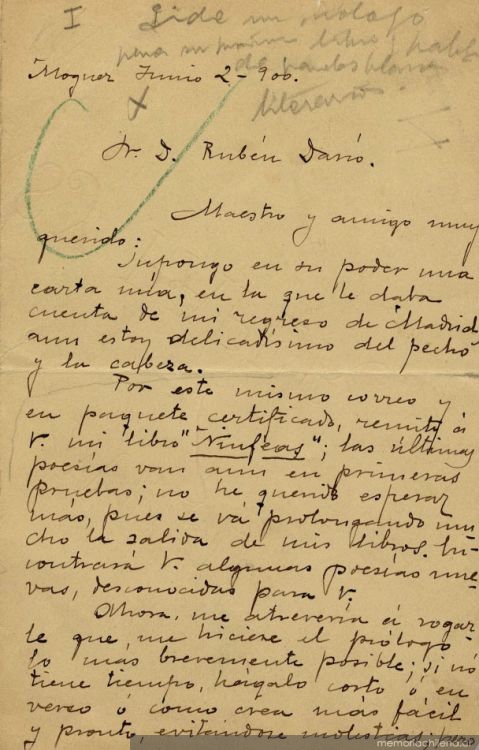 I Pide un prólogo
para su primer libro y habla
de
literarios.
Moguer Junio 2-900.
Sr. D. Rubén Darío.
Maestro y amigo muy
querido:
Supongo en su poder una
carta mía, en la que le daba
cuenta de mi regreso de Madrid
aun estoy delicadísimo del pecho
y la cabeza.
Por este mismo correo y
en paquete certificado, remito á
V. mi libro "Ninfeas"; las últimas
poesías van aun en primeras
pruebas; no he querido esperar
más, pues se vá prolongando mu
cho la salida de mis libros. En-
contrará V. algunas poesías nue-
vas, desconocidas para V.
Ahora, me atrevería á rogar-
le que, me hiciese el prólogo
lo mas brevemente posible; si nó
tiene tiempo, hágalo corto ó en
verso ó como crea más fácil
y pronto, evitándose molestias; pero
memoriachilena.cl